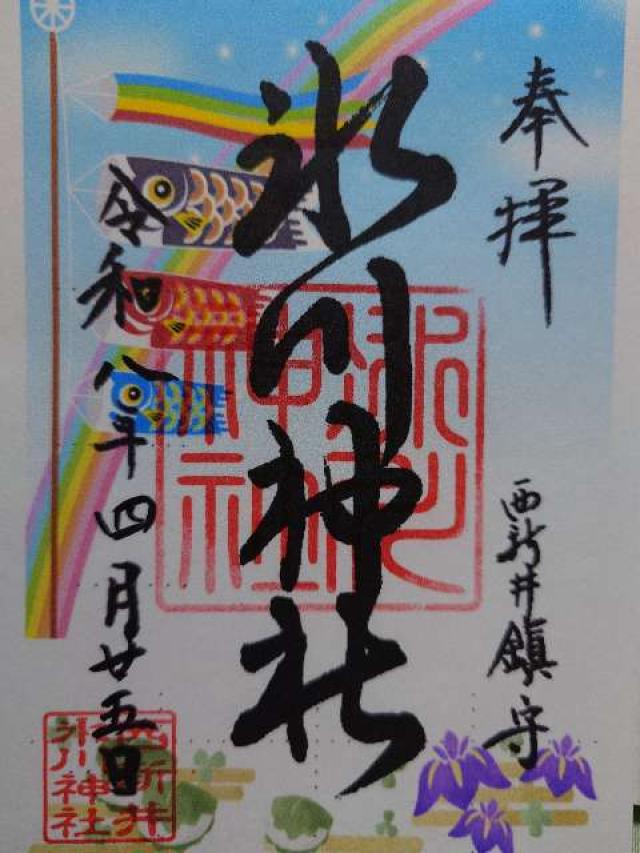 奉拝
西新井鎮守
氷川神社
氷川神社
令和八年四月廿五日
西新井
氷川神社